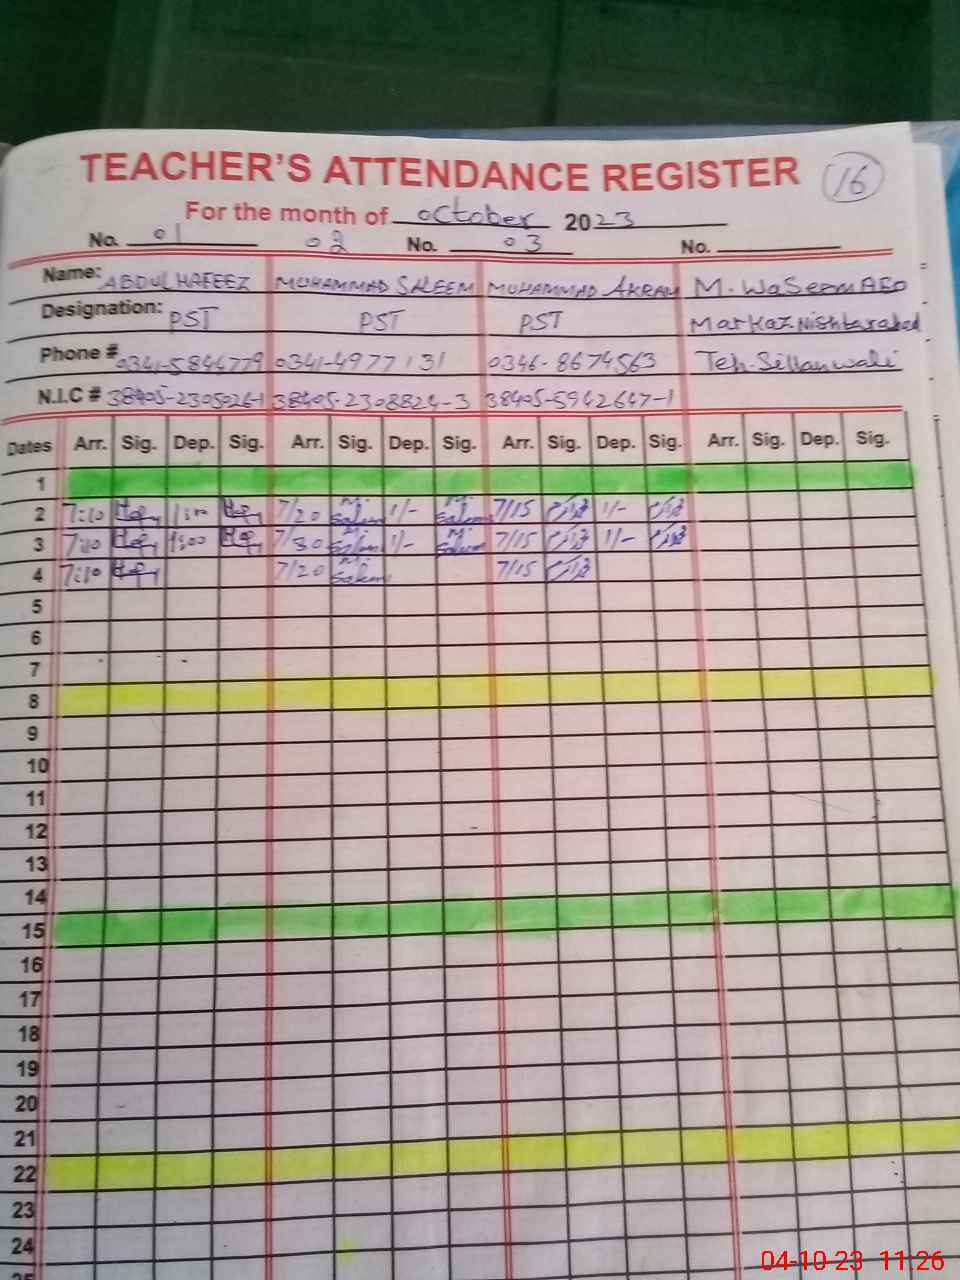 TEACHER'S ATTENDANCE REGISTER 16
For the month of October 2023
No. 01 02 No. 03 No.
Name: ABDUL HAFEEZ MUHAMMAD SALEEM MUHAMMAD AKRAM M. WaSeem AEO
Designation: PST PST PST Markaz Nishtarabad
Phone # 0341-5844779 0341-4977131 0346-8674563 Teh. Sillanwali
N.I.C # 38405-2305026-1 38405-2308824-3 38405-5942647-1
Dates Arr. Sig. Dep. Sig. Arr. Sig. Dep. Sig. Arr. Sig. Dep. Sig. Arr. Sig. Dep. Sig.
1
2 7:10 1:00 7/20 M. Saleem 1/- M. Saleem 7/15 1/-
3 7:10 1:00 7/30 M. Saleem 1/- M. Saleem 7/15 1/-
4 7:10 7/20 M. Saleem 7/15
5
6
7
8
9
10
11
12
13
14
15
16
17
18
19
20
21
22
23
24
04-10-23 11:26